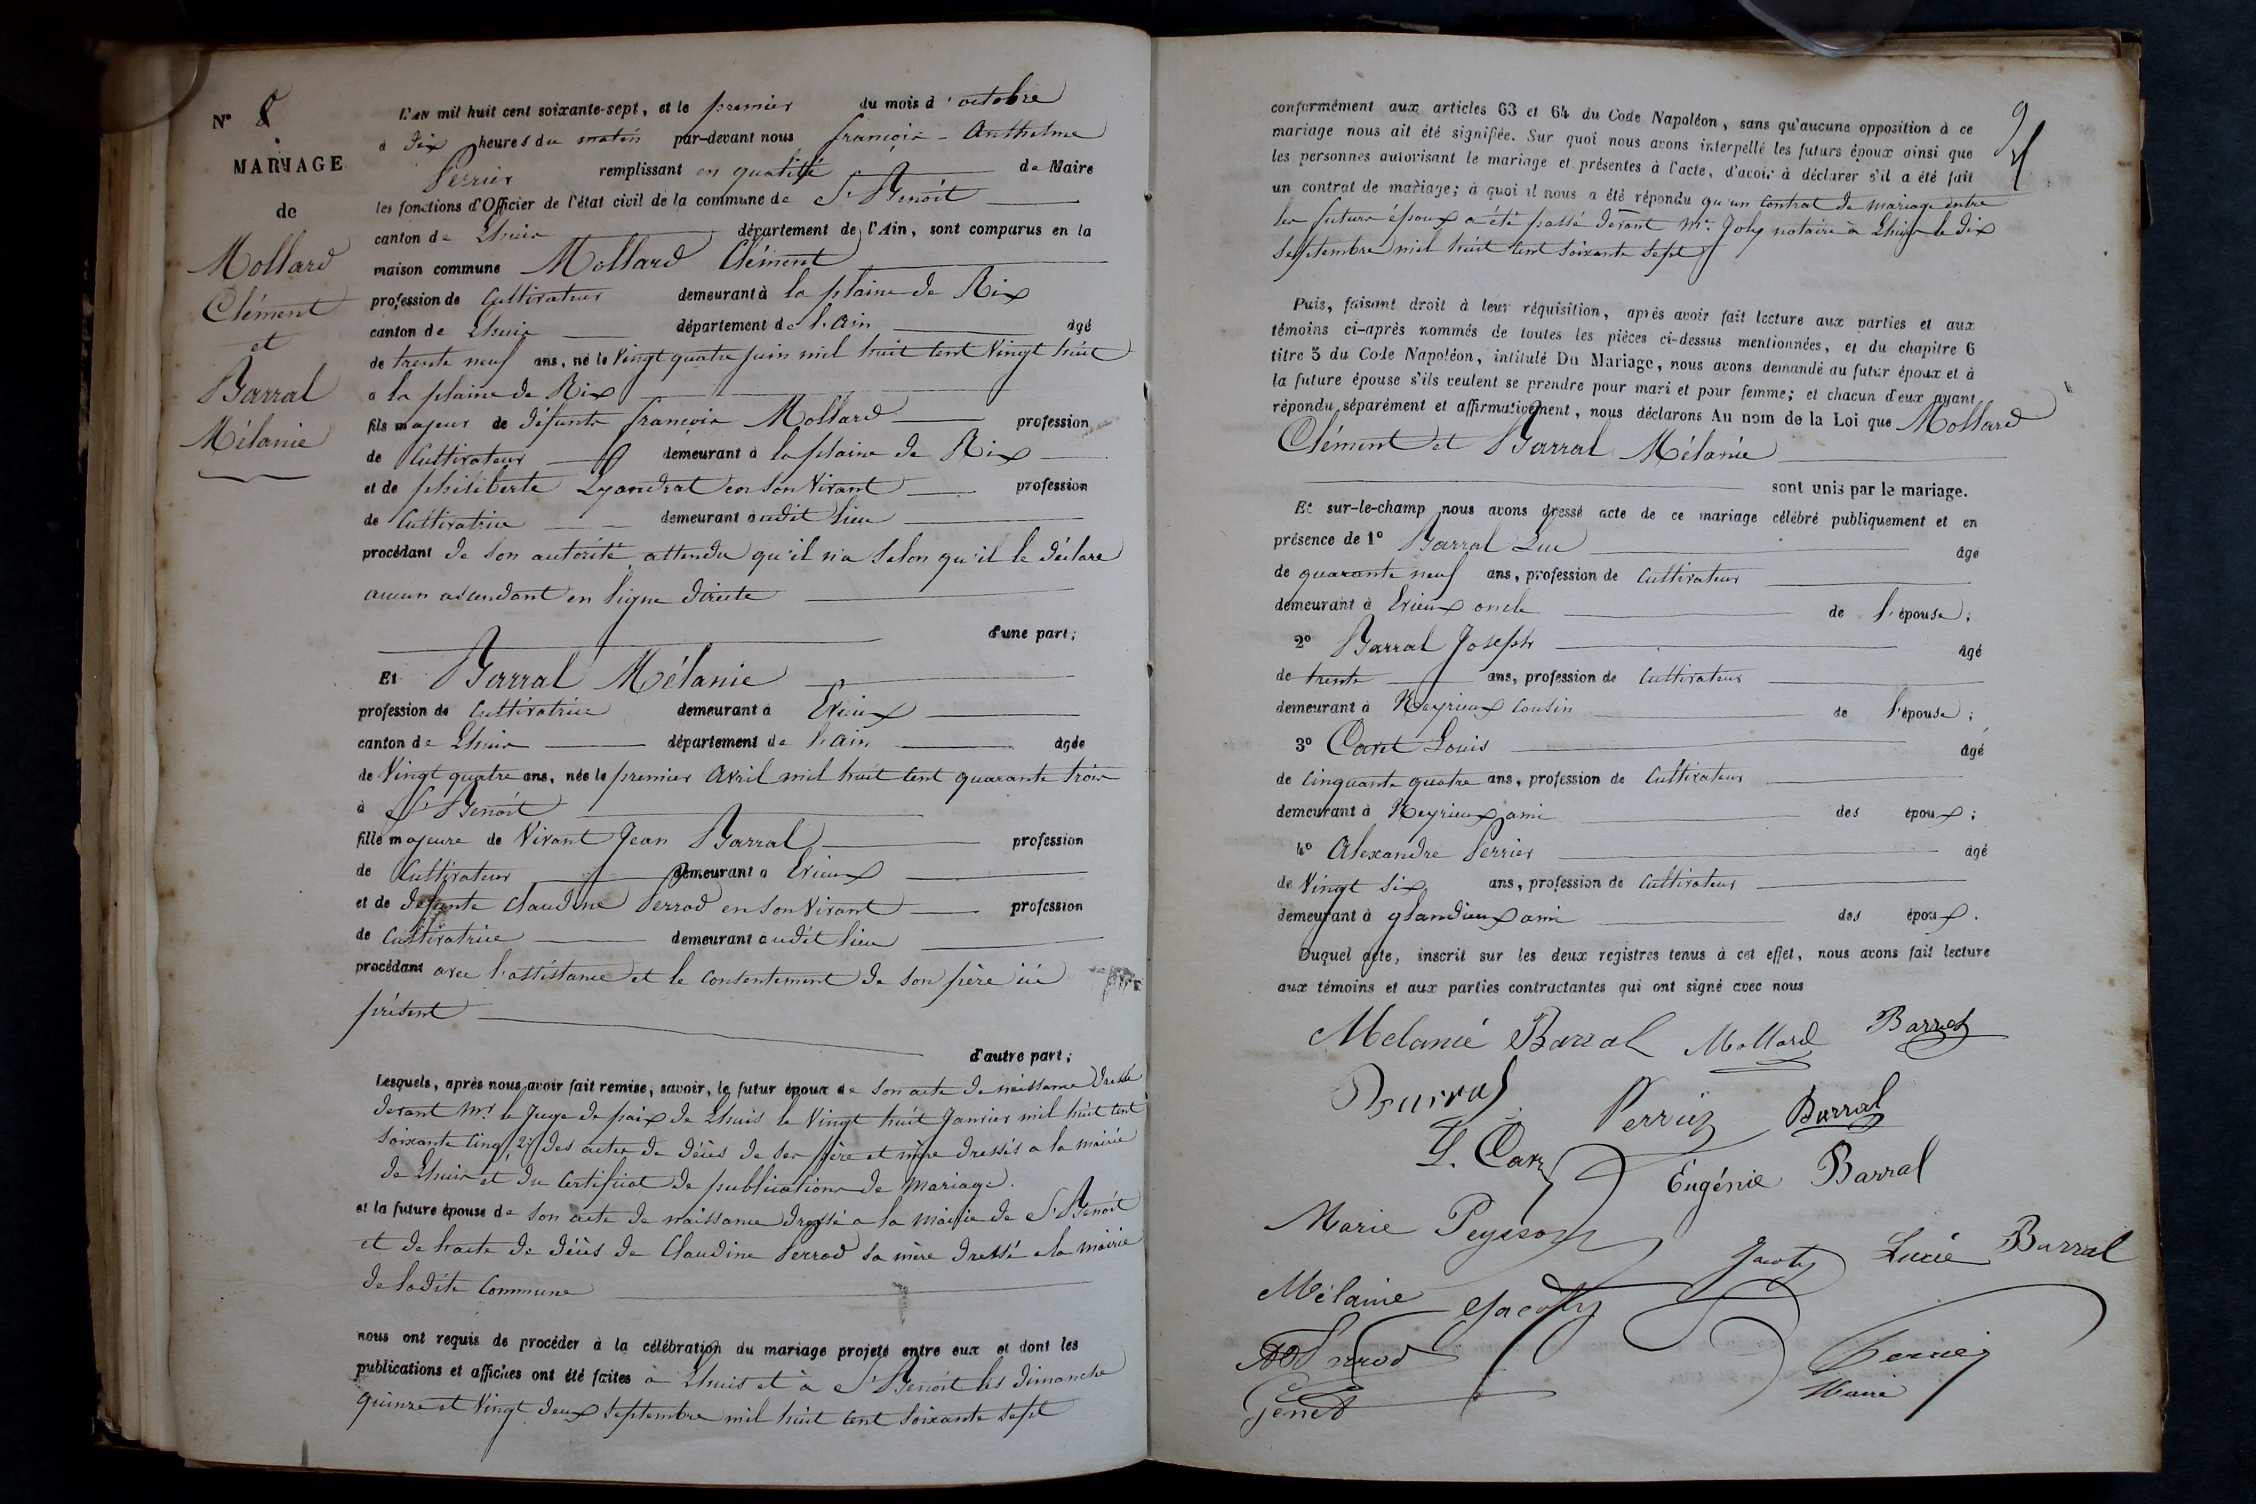 N° 8
MARIAGE
de
Mollard
Clément
et
Barral
Mélanie
L'AN mil huit cent soixante-sept, et le premier du mois d'octobre
à dix heures du matin par-devant nous françois-Anthelme
Perrier remplissant en qualité de Maire
les fonctions d'Officier de l'état civil de la commune de St Benoît
canton de Lhuis département de l'Ain, sont comparus en la
maison commune Mollard Clément
profession de Cultivateur demeurant à la plaine de Rix
canton de Lhuis département de l'ain âgé
de trente neuf ans, né le Vingt quatre juin mil huit Cent Vingt huit
a la plaine de Rix
fils majeur de défunts françois Mollard profession
de Cultivateur demeurant à la plaine de Rix
et de philiberte Lyandrat en son Vivant profession
de Cultivatrice demeurant audit lieu
procédant de son autorité attendu qu'il n'a selon qu'il le déclare
aucun ascendant en ligne directe
d'une part;
Et Barral Mélanie
profession de Cultivatrice demeurant à Erieux
canton de Lhuis département de l'ain âgée
de Vingt quatre ans, née le premier Avril mil huit Cent quarante trois
à St Benoît
fille majeure de Vivant Jean Barral profession
de Cultivateur demeurant à Erieux
et de défunte Claudine Perrod en son Vivant profession
de Cultivatrice demeurant audit lieu
procédant avec l'assistance et le consentement de son père ici
présent
d'autre part;
Lesquels, après nous avoir fait remise, savoir, le futur époux de son acte de naissance dressé
devant Mr le Juge de paix de Lhuis le Vingt huit Janvier mil huit Cent
soixante Cinq, 2° des actes de décès de ses père et mère dressés a la mairie
de Lhuis et du Certificat de publications de Mariage.
et la future épouse de son acte de naissance dressé a la Mairie de St Benoît
et de l'acte de décès de Claudine Perrod sa mère dressé a la mairie
de ladite Commune
nous ont requis de procéder à la célébration du mariage projeté entre eux et dont les
publications et affiches ont été faites à Lhuis et à St Benoît les dimanche
quinze et Vingt deux septembre mil huit Cent soixante sept
9
conformément aux articles 63 et 64 du Code Napoléon, sans qu'aucune opposition à ce
mariage nous ait été signifiée. Sur quoi nous avons interpellé les futurs époux ainsi que
les personnes autorisant le mariage et présentes à l'acte, d'avoir à déclarer s'il a été fait
un contrat de mariage; à quoi il nous a été répondu qu'un Contrat de mariage entre
les futurs époux a été passé devant Mr Joly notaire à Lhuis le dix
septembre mil huit Cent soixante sept
Puis, faisant droit à leur réquisition, après avoir fait lecture aux parties et aux
témoins ci-après nommés de toutes les pièces ci-dessus mentionnées, et du chapitre 6
titre 5 du Code Napoléon, intitulé Du Mariage, nous avons demandé au futur époux et à
la future épouse s'ils veulent se prendre pour mari et pour femme; et chacun d'eux ayant
répondu séparément et affirmativement, nous déclarons Au nom de la Loi que Mollard
Clément et Barral Mélanie
sont unis par le mariage.
Et sur-le-champ nous avons dressé acte de ce mariage célébré publiquement et en
présence de 1° Barral Luc âgé
de quarante neuf ans, profession de Cultivateur
demeurant à Erieux oncle de l'épouse;
2° Barral Joseph âgé
de trente ans, profession de Cultivateur
demeurant à Neyrieux Cousin de l'épouse;
3° Caret Louis âgé
de Cinquante quatre ans, profession de Cultivateur
demeurant à Neyrieux ami des époux;
4° Alexandre Perrier âgé
de Vingt six ans, profession de Cultivateur
demeurant à glandieux ami des époux.
Duquel acte, inscrit sur les deux registres tenus à cet effet, nous avons fait lecture
aux témoins et aux parties contractantes qui ont signé avec nous
Melanie Barral Mollard Barral
Barral Perrier Barral
L. Caret Eugénie Barral
Marie Peysson Jacoty Lucie Barral
Mélanie Jacoty
Perrod Perrier
Genet Maire